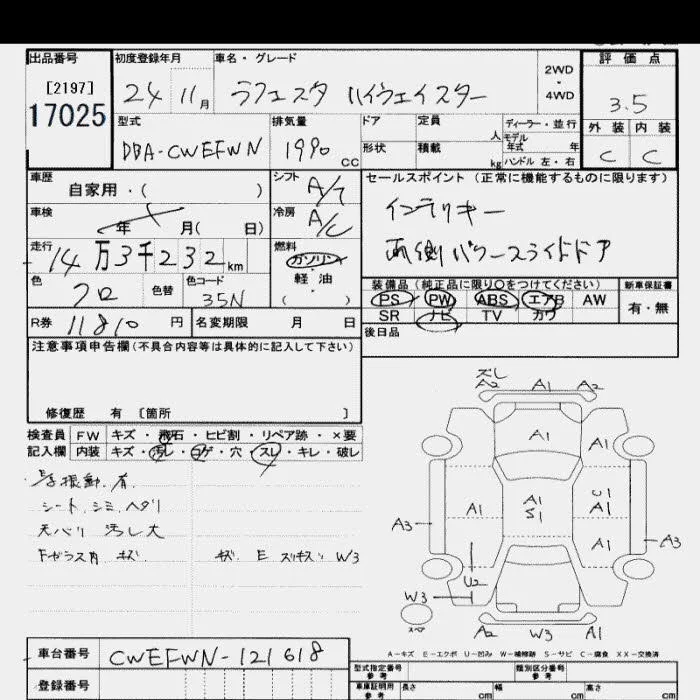 出品番号 初度登録年月 車名・グレード 評価点
[2197] 2WD
17025 24 11月 ラフェスタ ハイウェイスター ・ 4WD 3.5
型式 排気量 ドア 定員 人 ディーラー・並行 外装 内装
モデル年式 年
DBA-CWEFWN 1990cc 形状 積載 kg ハンドル 左・右 C C
車歴 自家用・( ) シフト A/T セールスポイント (正常に機能するものに限ります)
車検 年 月( 日) 冷房 A/C インテリキー
走行 14万3千232km 燃料 ガソリン 両側パワースライドドア
色 クロ 色替 色コード 35N 軽油 ( ・ )
装備品 (純正品に限り○をつけてください) 新車保証書
PS PW ABS エアB AW 有・無
R券 11810円 名変期限 月 日 SR ナビ TV カワ
後日品
注意事項申告欄 (不具合内容等は具体的に記入して下さい)
修復歴 有 [箇所 ]
検査員 FW キズ・飛石・ヒビ割・リペア跡・×要
記入欄 内装 キズ・汚レ・コゲ・穴・スレ・キレ・破レ
振動有
シート シミ ヘタリ
天バリ 汚レ大
Fガラス内 キズ キズ E W3
A2 A1 A2
A1
A1 A1 U1
S1 A1
A3 A1 A3
U2
W3
スペア A2 W3 A1
A-キズ E-エクボ U-凹み W-補修跡 S-サビ C-腐食 XX-交換済
車台番号 CWEFWN-121618
型式指定番号 参考 類別区分番号 参考
登録番号 車庫証明用 参考 長さ cm 幅 cm 高さ cm